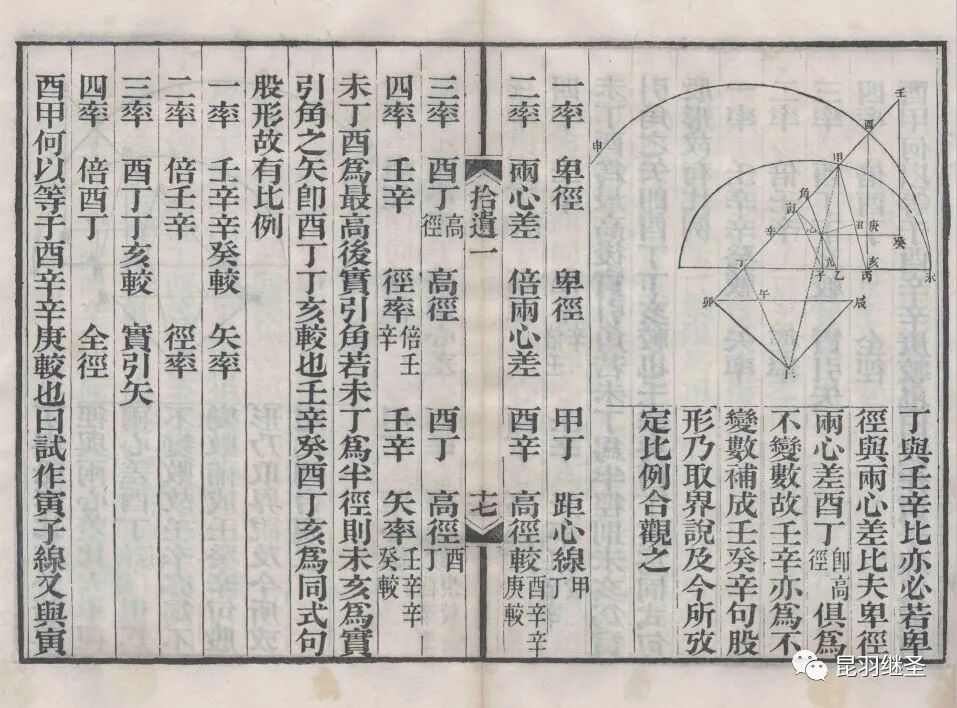 丁與壬辛比亦必若卑
徑與兩心差比夫卑徑
兩心差酉丁卽高徑俱爲
不變數故壬辛亦爲不
變數補成壬癸辛句股
形乃取界說及今所攷
定比例合觀之
一率 卑徑 卑徑 甲丁 距心線甲丁
二率 兩心差 倍兩心差 酉辛 高徑較酉辛辛庚較
拾遺一 十七
三率 酉丁高徑 高徑 酉丁 高徑酉丁
四率 壬辛 徑率倍壬辛 壬辛 矢率壬辛辛癸較
未丁酉爲最高後實引角若未丁爲半徑則未亥爲實
引角之矢卽酉丁丁亥較也壬辛癸酉丁亥爲同式句
股形故有比例
一率 壬辛辛癸較 矢率
二率 倍壬辛 徑率
三率 酉丁丁亥較 實引矢
四率 倍酉丁 全徑
酉甲何以等子酉辛辛庚較也曰試作寅子線又與寅
壬
酉
申
甲
角
寅
辛
丑
庚
癸
丁
子
乙
丙
亥
未
卯
午
辰
昆羽继圣